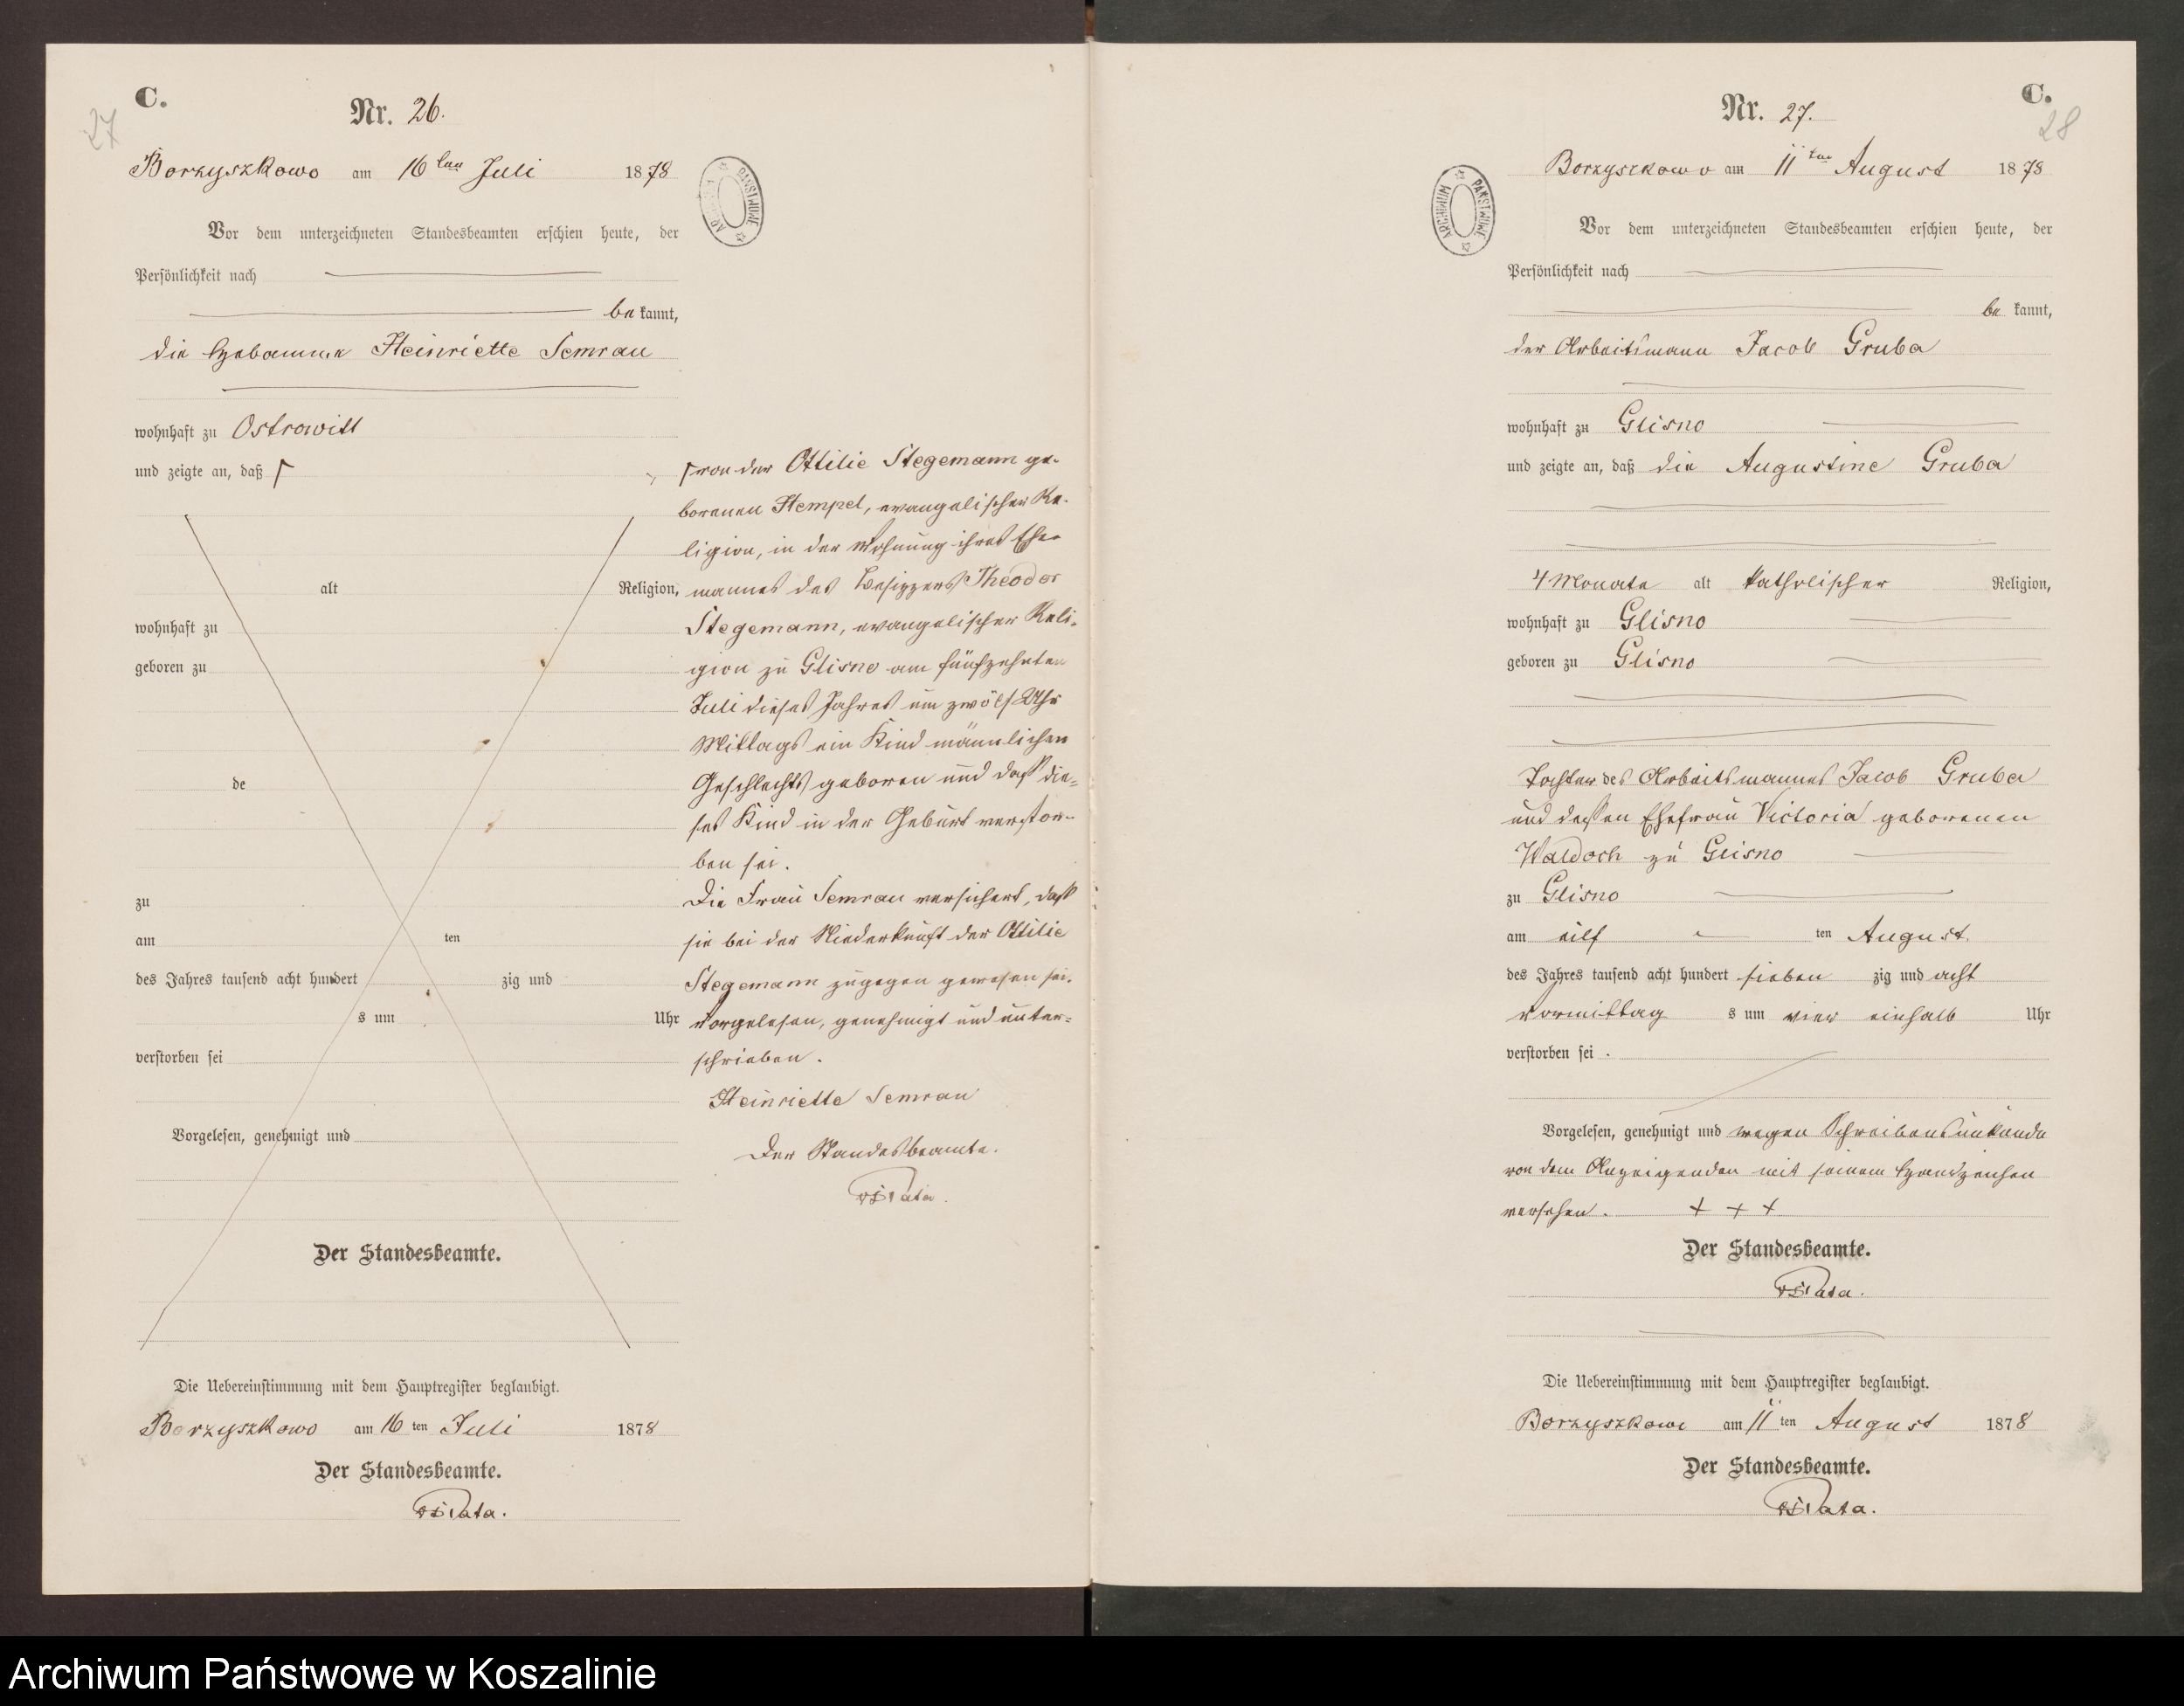 27
C.
Nr. 26.
Borzyszkowo am 16ten Juli 1878
Vor dem unterzeichneten Standesbeamten erschien heute, der
Persönlichkeit nach
bekannt,
die Hebamme Heinriette Semrau
wohnhaft zu Ostrowitt
und zeigte an, daß ⌈
alt Religion,
wohnhaft zu
geboren zu
de
zu
am ten
des Jahres tausend acht hundert zig und
s um Uhr
verstorben sei
Vorgelesen, genehmigt und
Der Standesbeamte.
Die Uebereinstimmung mit dem Hauptregister beglaubigt.
Borzyszkowo am 16 ten Juli 1878
Der Standesbeamte.
ARCHIWUM PAŃSTWOWE
⌈von der Ottilie Stegemann ge-
borenen Hempel, evangelischer Re-
ligion, in der Wohnung ihres Ehe-
mannes des Besitzers Theodor
Stegemann, evangelischer Reli-
gion zu Glisno am fünfzehnten
Juli dieses Jahres um zwölf Uhr
Mittags ein Kind männlichen
Geschlechts geboren und daß die-
ses Kind in der Geburt verstor-
ben sei.
Die Frau Semrau versichert, daß
sie bei der Niederkunft der Ottilie
Stegemann zugegen gewesen sei.
Vorgelesen, genehmigt und unter-
schrieben.
Heinriette Semrau
Der Standesbeamte.
ARCHIWUM PAŃSTWOWE
C.
28
Nr. 27.
Borzyszkowo am 11ten August 1878
Vor dem unterzeichneten Standesbeamten erschien heute, der
Persönlichkeit nach
bekannt,
der Arbeitsmann Jacob Gruba
wohnhaft zu Glisno
und zeigte an, daß die Augustine Gruba
4 Monate alt katholischer Religion,
wohnhaft zu Glisno
geboren zu Glisno
Tochter des Arbeitsmannes Jacob Gruba
und dessen Ehefrau Victoria geborenen
Waldoch zu Glisno
zu Glisno
am eilf ten August
des Jahres tausend acht hundert sieben zig und acht
Vormittag s um vier einhalb Uhr
verstorben sei.
Vorgelesen, genehmigt und wegen Schreibensunkunde
von dem Anzeigenden mit seinem Handzeichen
versehen. + + +
Der Standesbeamte.
Die Uebereinstimmung mit dem Hauptregister beglaubigt.
Borzyszkowo am 11 ten August 1878
Der Standesbeamte.
Archiwum Państwowe w Koszalinie